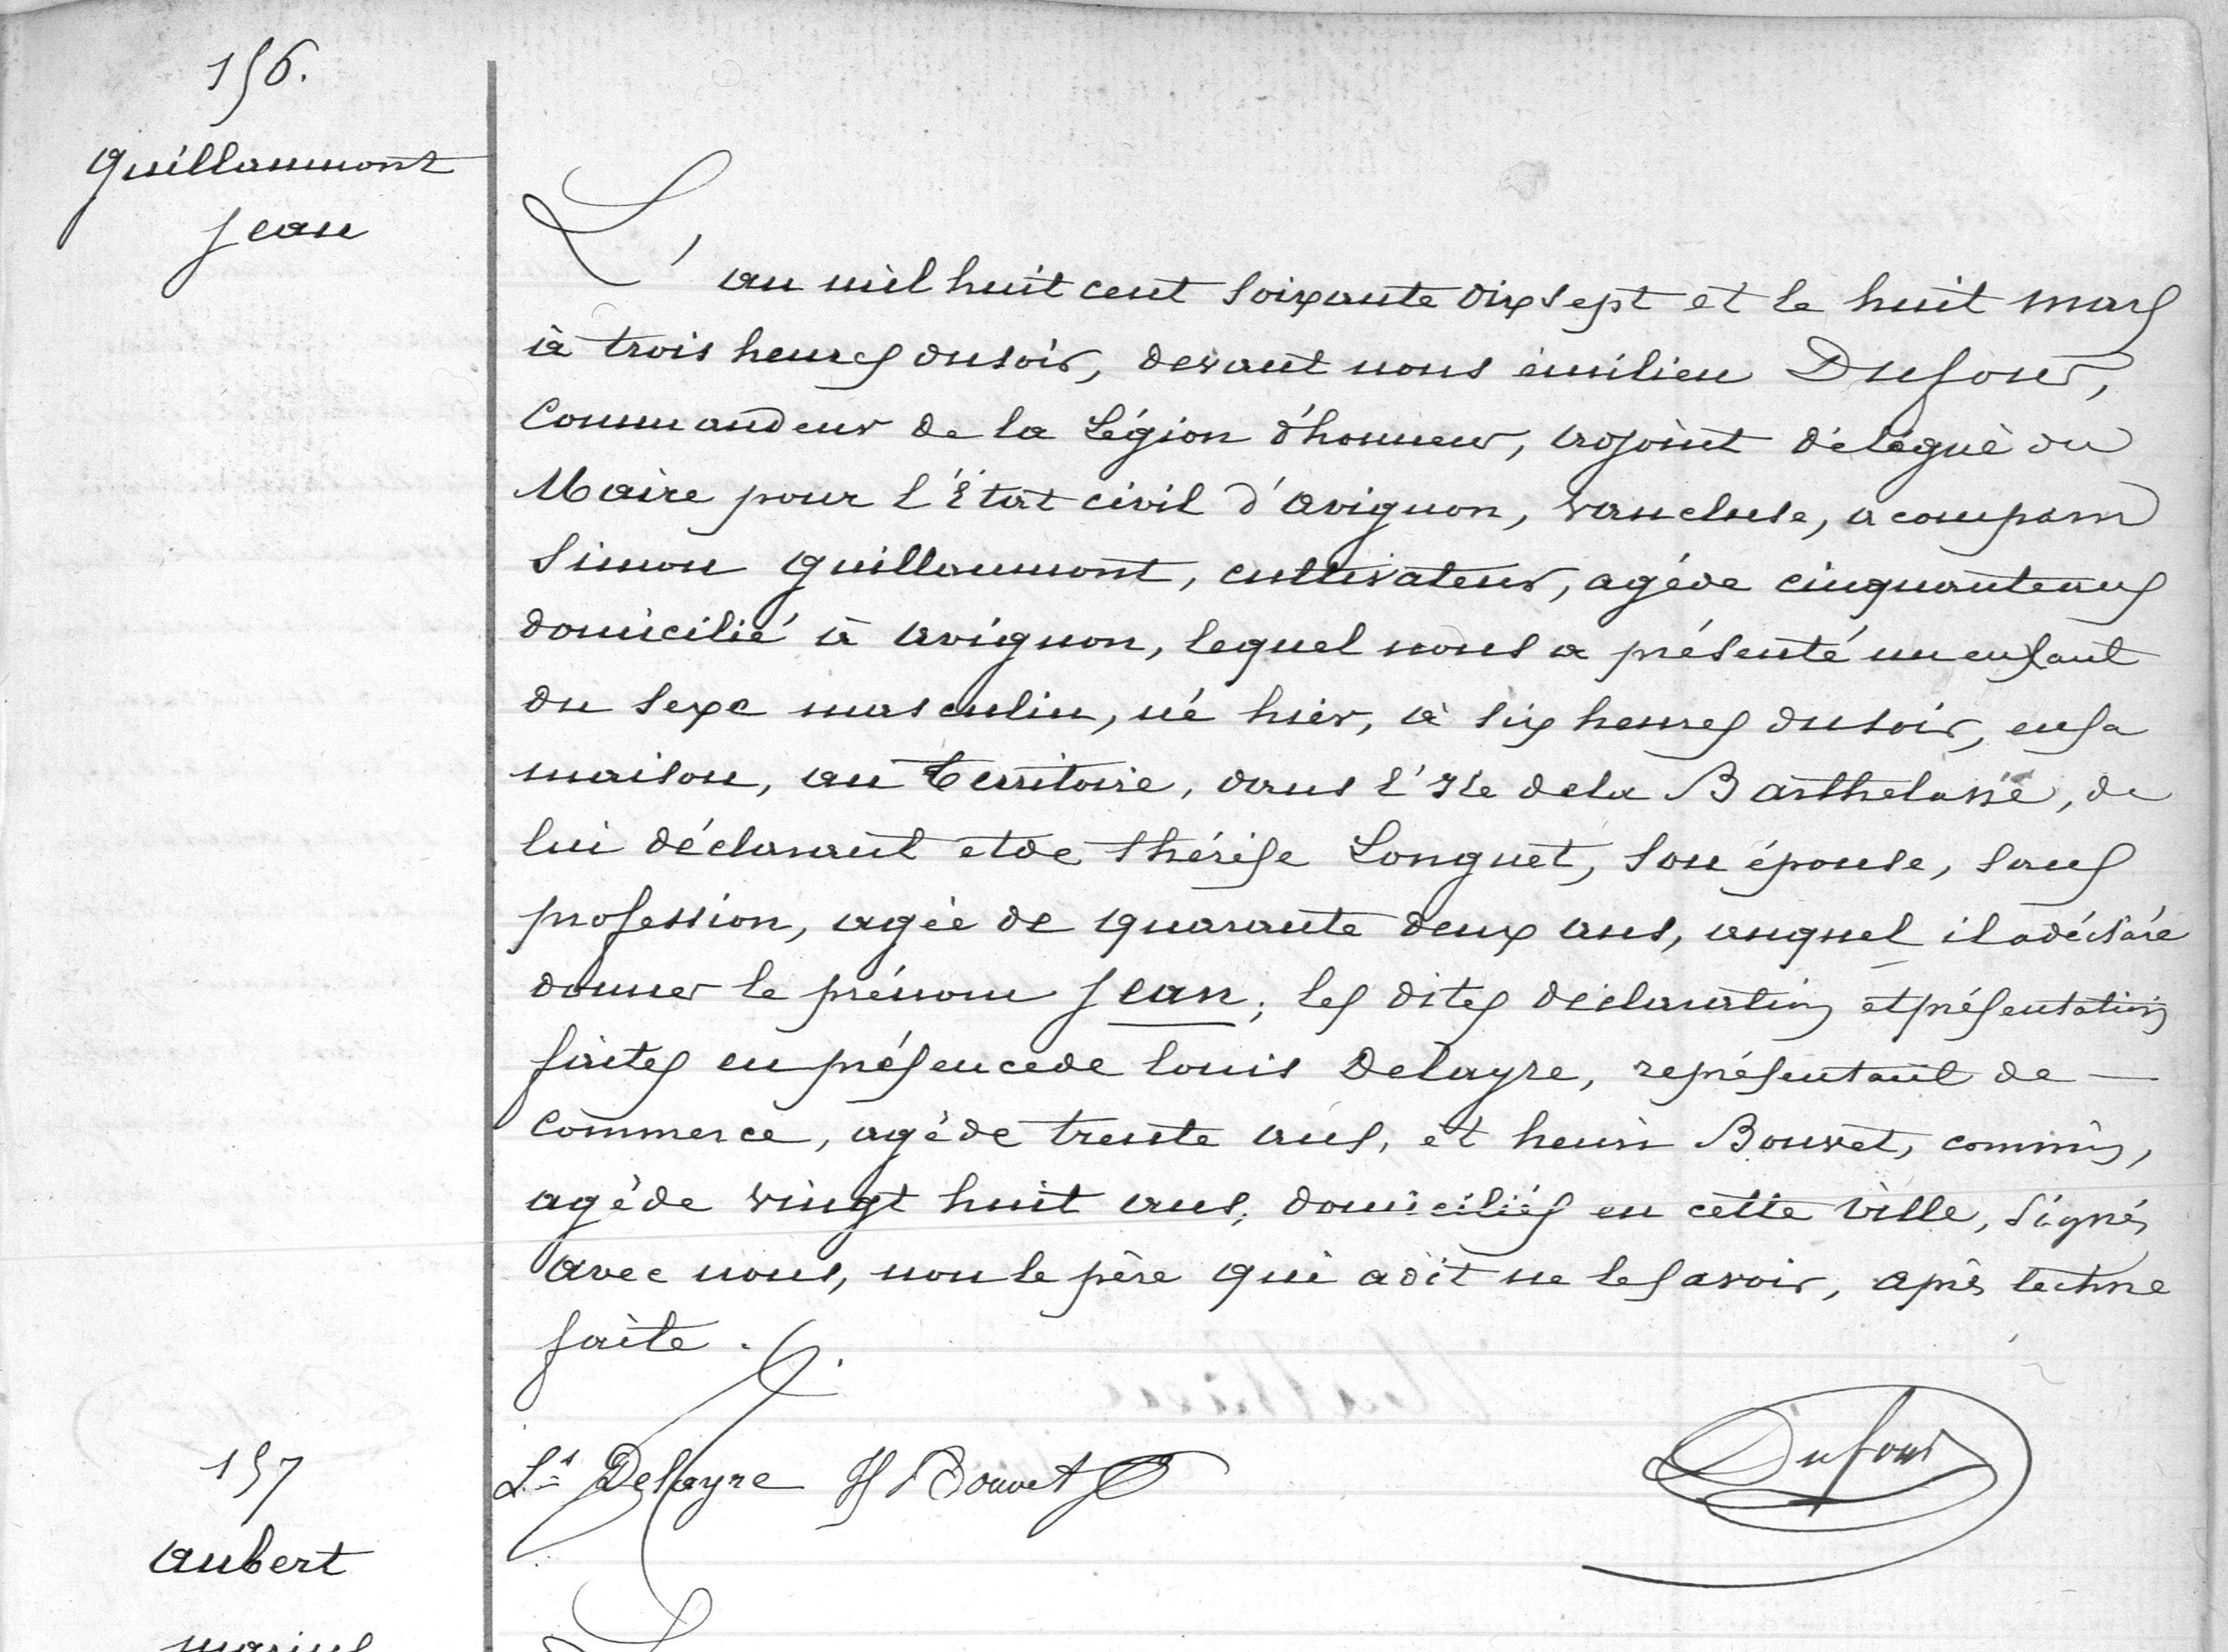 156.
Guillaumont
Jean
L'an mil huit cent soixante dix sept et le huit mars
à trois heures du soir, devant nous émilien Dufour,
Commandeur de la Légion d'honneur, adjoint délégué du
Maire pour l'État civil d'avignon, vaucluse, a comparu
Simon Guillaumont, cultivateur, agé de cinquante ans
domicilié à avignon, lequel nous a présenté un enfant
du sexe masculin, né hier, à six heures du soir, en sa
maison, au territoire, dans l'Ile de la Barthelasse, de
lui déclarant et de thérèse Longuet, son épouse, sans
profession, agée de quarante deux ans, auquel il a déclaré
donner le prénom Jean; les dites déclaration et présentation
faites en présence de louis Delayre, représentant de —
Commerce, agé de trente ans, et henri Bouvet, commis,
agé de vingt huit ans, domiciliés en cette ville, signés
avec nous, non le père qui a dit ne le savoir, après lecture
faite.
Ls Delayre H Bouvet
Dufour
157
aubert
marius